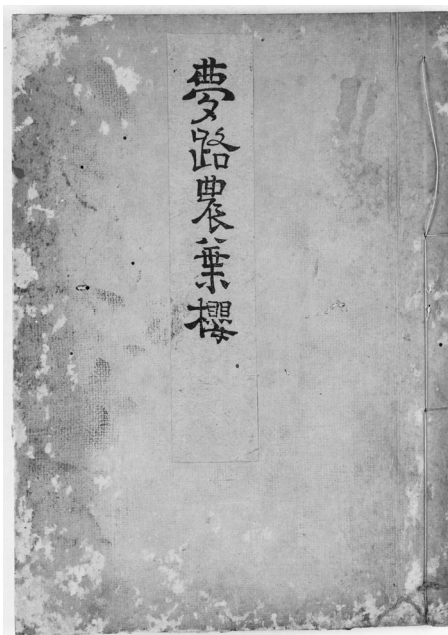 夢路農葉櫻